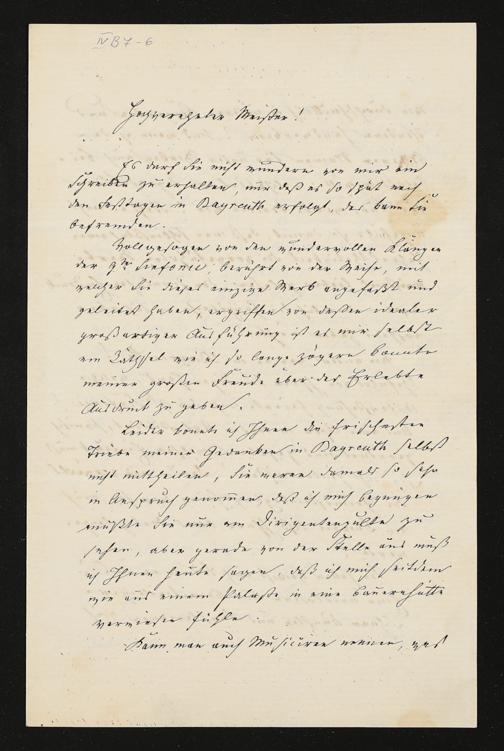 IV B 7 - 6
Hochverehrter Meister!
Es darf Sie nicht wundern von mir ein
Schreiben zu erhalten, nur daß es so spät nach
den Festtagen in Bayreuth erfolgt, das kann Sie
befremden.
Vollgesogen von den wundervollen Klängen
der 9ten Sinfonie, berührt von der Weise, mit
welcher Sie dieses einzige Werk angefaßt und
geleitet haben, ergriffen von dessen idealer
großartiger Ausführung ist es mir selbst
ein Räthsel wie ich so lange zögern konnte
meiner großen Freude über das Erlebte
Ausdruck zu geben.
Leider konnte ich Ihnen die frischesten
Triebe meiner Gedanken in Bayreuth selbst
nicht mittheilen, Sie waren damals so sehr
in Anspruch genommen, daß ich mich begnügen
mußte Sie nur am Dirigentenpulte zu
sehen, aber gerade von der Stelle aus muß
ich Ihnen heute sagen daß ich mich seitdem
wie aus einem Palaste in eine Bauernhütte
verwiesen fühle.
Kann man auch Musiciren nennen, was